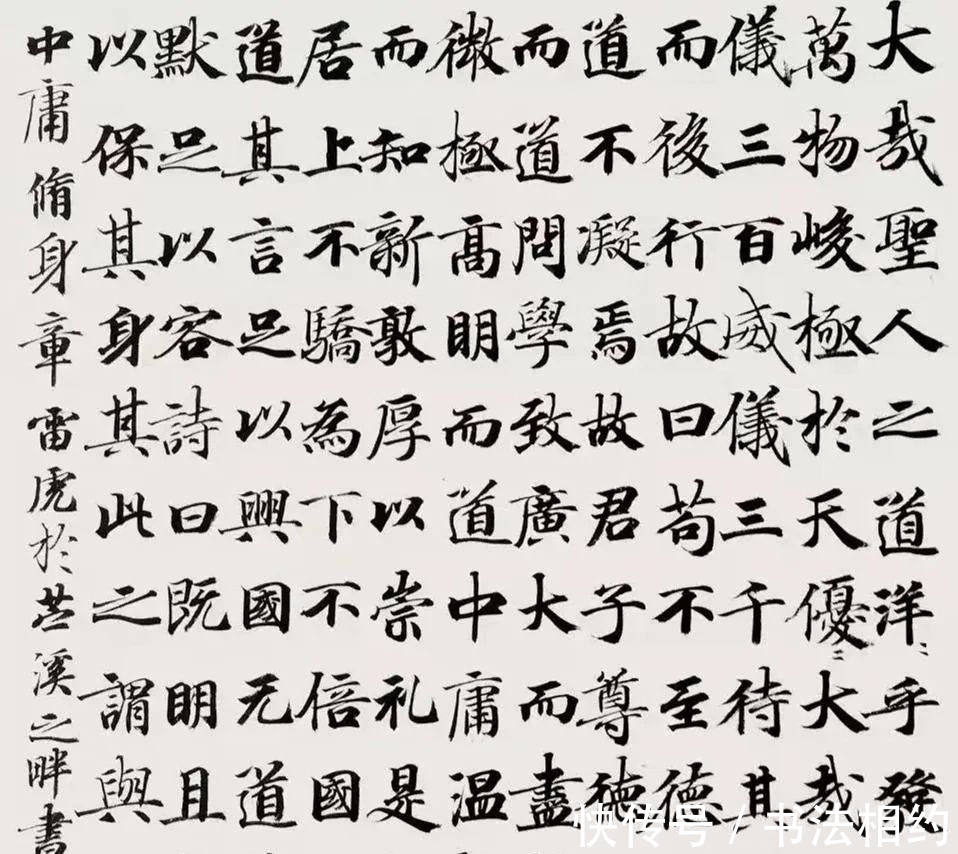 大哉聖人之道洋〻乎發
萬物峻極於天優〻大哉
儀三百威儀三千待其
而後行故曰苟不至德
道不凝焉故君子尊德
而道問學致廣大而盡
微極高明而道中庸温
而知新敦厚以崇礼是
居上不驕為下不倍國
道其言足以興國无道
默足以容詩曰既明且
以保其身其此之謂與
中庸脩身章雷虎於苕溪之畔書
快传号 / 书法相约